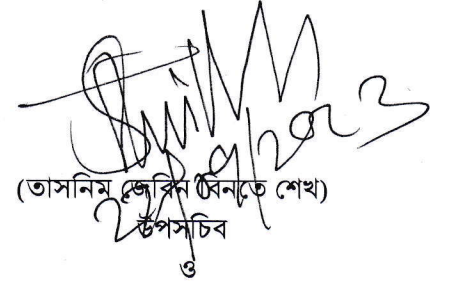 (তাসনিম জেবিন বিনতে শেখ)
উপসচিব
ও